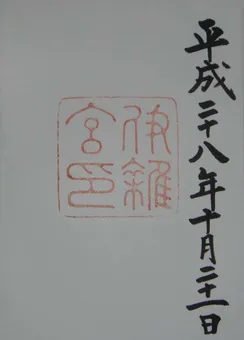 平成二十八年十月二十一日
伊雜
宮印